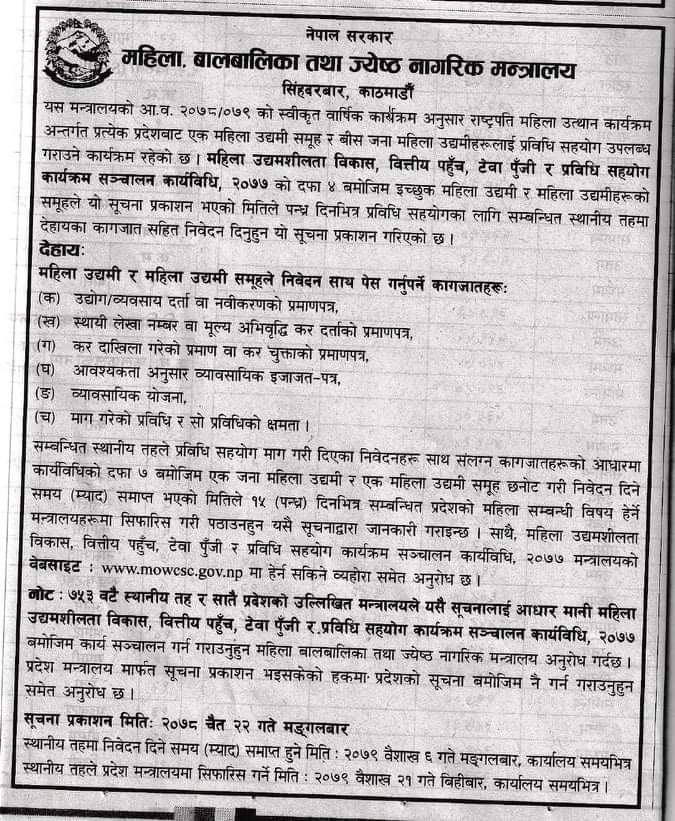 नेपाल सरकार
महिला, बालबालिका तथा ज्येष्ठ नागरिक मन्त्रालय
सिंहदरबार, काठमाडौँ
यस मन्त्रालयको आ.व. २०७८/०७९ को स्वीकृत वार्षिक कार्यक्रम अनुसार राष्ट्रपति महिला उत्थान कार्यक्रम
अन्तर्गत प्रत्येक प्रदेशबाट एक महिला उद्यमी समूह र बीस जना महिला उद्यमीहरूलाई प्रविधि सहयोग उपलब्ध
गराउने कार्यक्रम रहेको छ । महिला उद्यमशीलता विकास, वित्तीय पहुँच, टेवा पुँजी र प्रविधि सहयोग
कार्यक्रम सञ्चालन कार्यविधि, २०७७ को दफा ४ बमोजिम इच्छुक महिला उद्यमी र महिला उद्यमीहरूको
समूहले यो सूचना प्रकाशन भएको मितिले पन्ध्र दिनभित्र प्रविधि सहयोगका लागि सम्बन्धित स्थानीय तहमा
देहायका कागजात सहित निवेदन दिनुहुन यो सूचना प्रकाशन गरिएको छ ।
देहायः
महिला उद्यमी र महिला उद्यमी समूहले निवेदन साथ पेस गर्नुपर्ने कागजातहरूः
(क) उद्योग/व्यवसाय दर्ता वा नवीकरणको प्रमाणपत्र,
(ख) स्थायी लेखा नम्बर वा मूल्य अभिवृद्धि कर दर्ताको प्रमाणपत्र,
(ग) कर दाखिला गरेको प्रमाण वा कर चुक्ताको प्रमाणपत्र,
(घ) आवश्यकता अनुसार व्यावसायिक इजाजत-पत्र,
(ङ) व्यावसायिक योजना,
(च) माग गरेको प्रविधि र सो प्रविधिको क्षमता ।
सम्बन्धित स्थानीय तहले प्रविधि सहयोग माग गरी दिएका निवेदनहरू साथ संलग्न कागजातहरूको आधारमा
कार्यविधिको दफा ७ बमोजिम एक जना महिला उद्यमी र एक महिला उद्यमी समूह छनोट गरी निवेदन दिने
समय (म्याद) समाप्त भएको मितिले १५ (पन्ध्र) दिनभित्र सम्बन्धित प्रदेशको महिला सम्बन्धी विषय हेर्ने
मन्त्रालयहरूमा सिफारिस गरी पठाउनहुन यसै सूचनाद्वारा जानकारी गराइन्छ । साथै, महिला उद्यमशीलता
विकास, वित्तीय पहुँच, टेवा पुँजी र प्रविधि सहयोग कार्यक्रम सञ्चालन कार्यविधि, २०७७ मन्त्रालयको
वेबसाइट : www.mowcsc.gov.np मा हेर्न सकिने व्यहोरा समेत अनुरोध छ ।
नोट : ७५३ वटै स्थानीय तह र सातै प्रदेशको उल्लिखित मन्त्रालयले यसै सूचनालाई आधार मानी महिला
उद्यमशीलता विकास, वित्तीय पहुँच, टेवा पुँजी र प्रविधि सहयोग कार्यक्रम सञ्चालन कार्यविधि, २०७७
बमोजिम कार्य सञ्चालन गर्न गराउनुहुन महिला बालबालिका तथा ज्येष्ठ नागरिक मन्त्रालय अनुरोध गर्दछ ।
प्रदेश मन्त्रालय मार्फत सूचना प्रकाशन भइसकेको हकमा प्रदेशको सूचना बमोजिम नै गर्न गराउनुहुन
समेत अनुरोध छ ।
सूचना प्रकाशन मितिः २०७८ चैत २२ गते मङ्गलबार
स्थानीय तहमा निवेदन दिने समय (म्याद) समाप्त हुने मिति : २०७९ वैशाख ६ गते मङ्गलबार, कार्यालय समयभित्र
स्थानीय तहले प्रदेश मन्त्रालयमा सिफारिस गर्ने मिति : २०७९ वैशाख २१ गते बिहीबार, कार्यालय समयभित्र ।